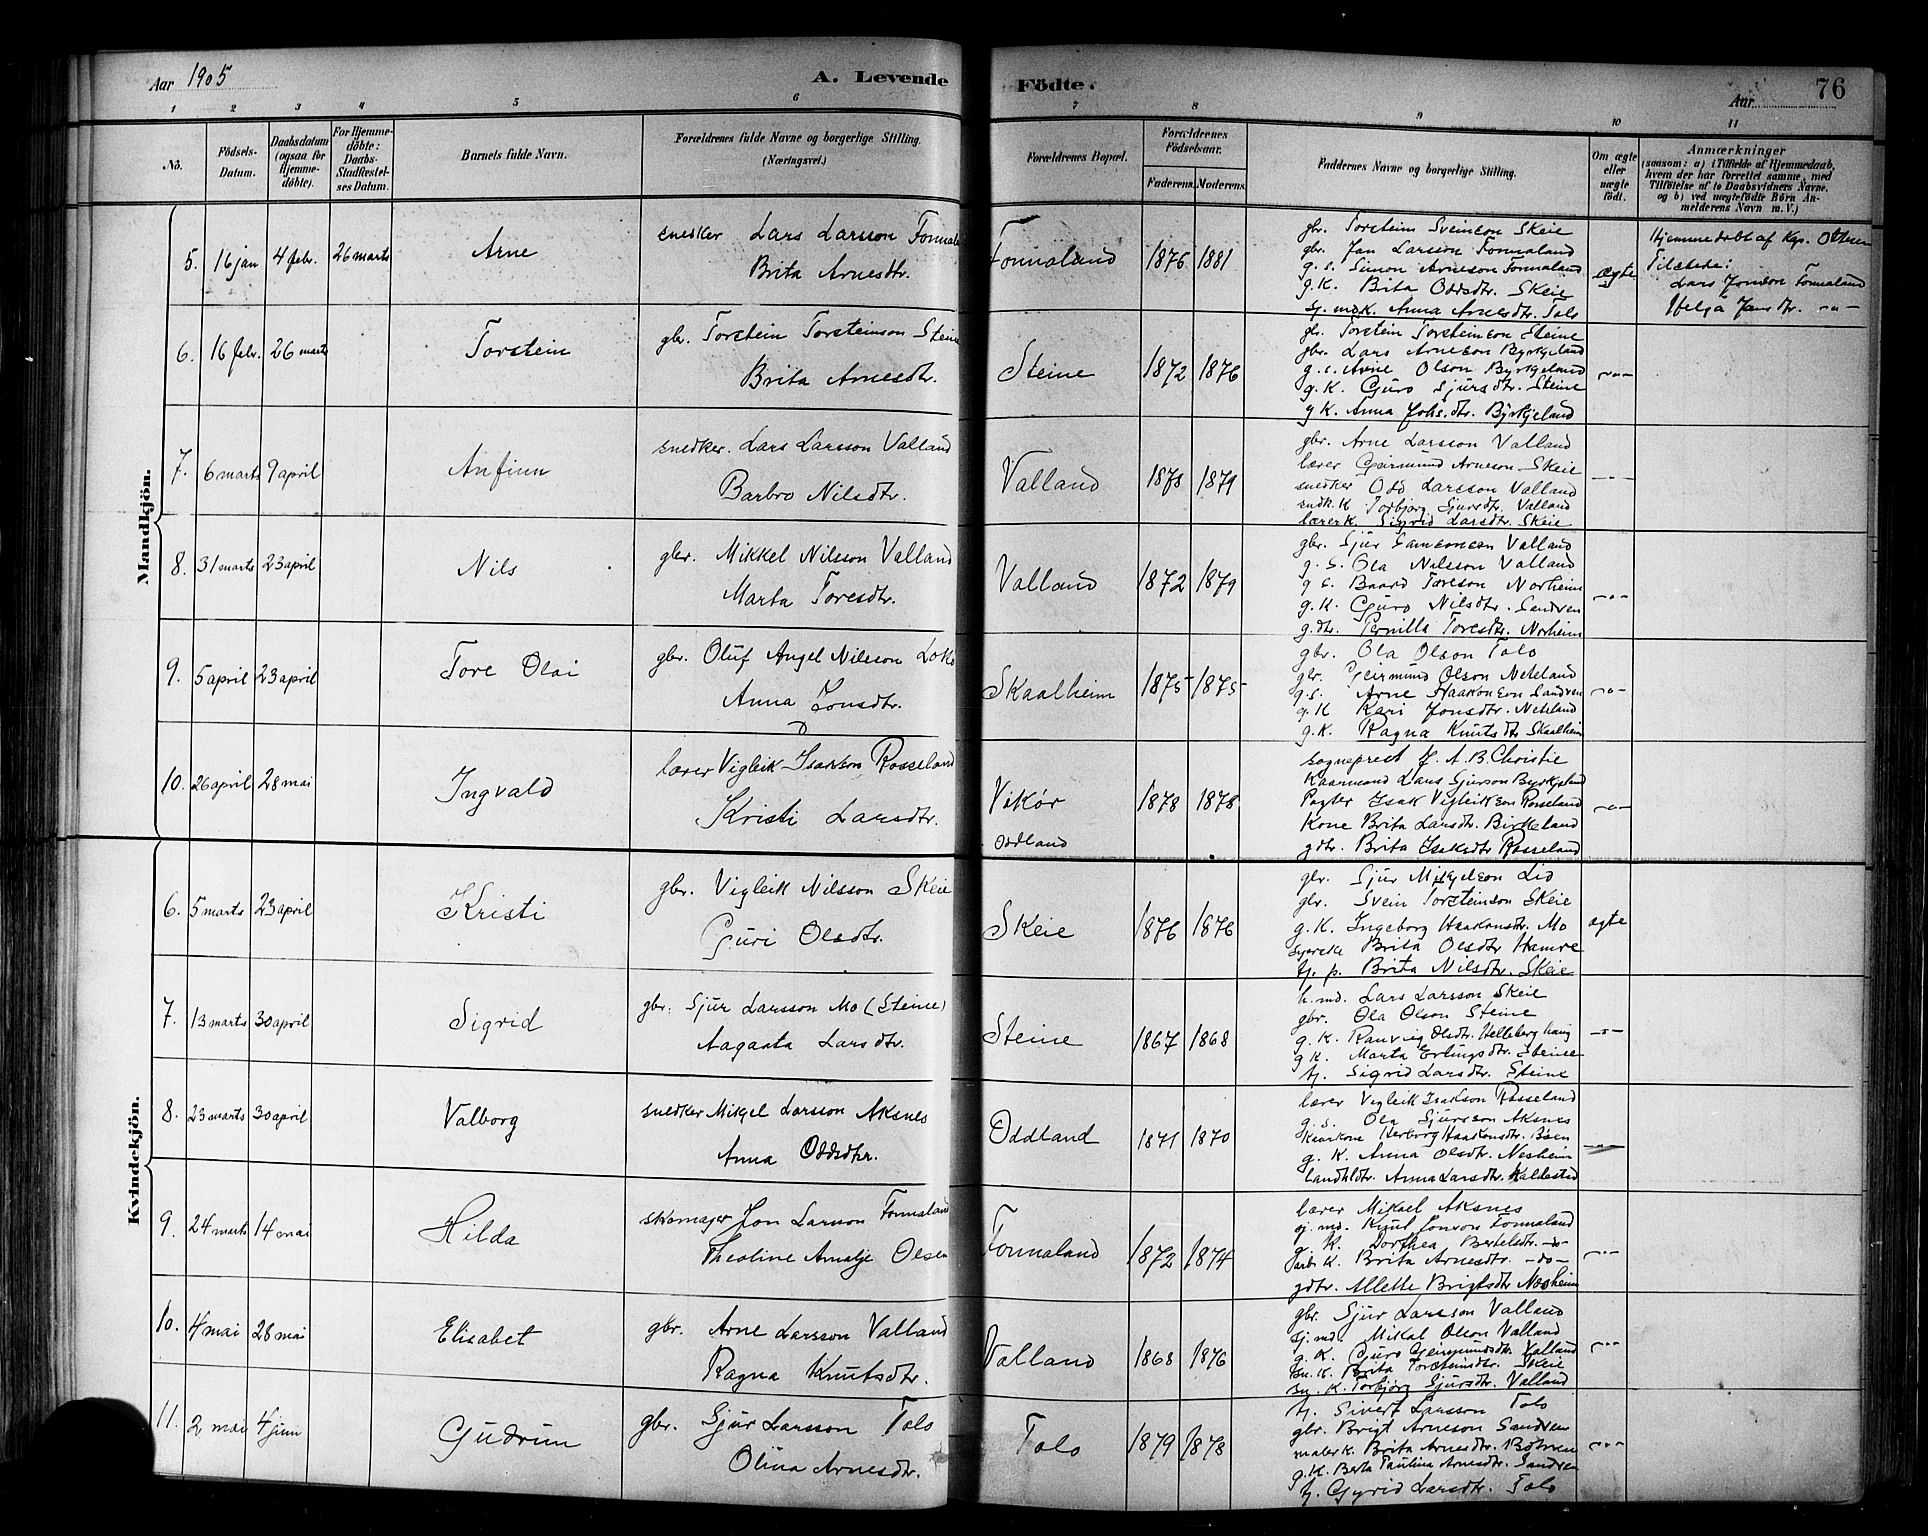 Aar 1905
A. Levende
Födte.
Aar
76
1 2 3 4 5 6 7 8 9 10 11
No.
Födsels-Datum.
Daabsdatum (ogsaa for Hjemme-döbte).
For Hjemme-döbte: Daabs-Stadfæstel-ses Datum.
Barnets fulde Navn.
Forældrenes fulde Navne og borgerlige Stilling. (Næringsvei.)
Forældrenes Bopæl.
Forældrenes Födselsaar.
Faderens. Moderens.
Faddernes Navne og borgerlige Stilling.
Om ægte eller uægte födt.
Anmærkninger
(saasom: a) i Tilfælde af Hjemmedaab,
hvem der har forrettet samme, med
Tilföielse af to Daabsvidners Navne,
og b) ved uægtefödte Börn An-
melderens Navn m. V.)
Mandkjön.
5. 16 jan 4 febr. 26 marts Arne
snedker Lars Larsson Fonnaland
Brita Arnesdtr.
Fonnaland 1876 1881
gbr. Torstein Sveinson Skeie
gbr. Jan Larsson Fonnaland
g.s. Simon Arneson Fonnaland
g.K. Brita Oddsdtr. Skeie
Anna Arnesdtr. Tolo
ægte
Hjemmedöbt af Kgs. Ottesen
Tilstede:
Lars Jonson Fonnaland
Helga Jansdtr. -"-
6. 16 febr. 26 marts Torstein
gbr. Torstein Torsteinson Steine
Brita Arnesdtr.
Steine 1872 1876
gbr. Torstein Torsteinson Steine
gbr. Lars Arneson Byrkjeland
g.s. Arne Olson Byrkjeland
g.K. Guro Sjursdtr. Steine
g K. Anna Johs.dtr. Byrkjeland
-"-
7. 6 marts 9 april Anfinn
snedker. Lars Larsson Valland
Barbro Nilsdtr.
Valland 1878 1879
gbr. Arne Larsson Valland
lærer Geirmund Arneson Skeie
snedker Odd Larsson Valland
snedk. K Torbjorg Sjursdtr. Valland
lærer K. Sigrid Larsdtr. Skeie
-"-
8. 31 marts 23 april Nils
gbr. Mikkel Nilsson Valland
Marta Toresdtr.
Valland 1872 1879
gbr. Sjur Samsonson Valland
g.s. Ola Nilsson Valland
g s. Baard Toreson Norheim
g.K. Guro Nilsdtr. Sandven
g.dtr. Pernilla Toresdtr. Norheim
-"-
9. 5 april 23 april Tore Olai
gbr. Oluf Angel Nilsson
Anna Jonsdtr.
Skaalheim 1875 1875
gbr. Ola Olson Tolo
gbr. Geirmund Olson Neteland
g.s. Arne Haakonson Sandven
g.K Kari Jonsdtr. Neteland
g.K. Ragna Knutsdtr Skaalheim
-"-
10. 26 april 28 mai Ingvald
lærer Vigleik Isakson Rosseland
Kristi Larsdtr.
Vikör 1878 1878
Oddland
sogneprest J. A. B. Christie
Kaarmand Lars Sjurson Byrkjeland
Pagter Isak Vigleikson Rosseland
Kone Brita Larsdtr. Birkeland
gdtr. Brita Isaksdtr Rosseland
-"-
Kvindekjön.
6. 5 marts 23 april Kristi
gbr. Vigleik Nilsson Skeie
Guri Olsdtr.
Skeie 1876 1876
gbr. Sjur Mikjelson Lid
gbr. Svein Torsteinson Skeie
g.K. Ingeborg Haakonsdtr. Mo
Brita Olsdtr Hamre
tj. p. Brita Nilsdtr. Skeie
ægte
7. 13 marts 30 april Sigrid
gbr. Sjur Larsson Mo (Steine)
Aagaata Larsdtr.
Steine 1867 1868
Lars Larsson Skeie
gbr. Ola Olson Steine
g.K. Ranveig Olsdtr. Helleberghaug
g K. Marta Erlingsdtr. Steine
tj. Sigrid Larsdtr. Steine
-"-
8. 23 marts 30 april Valborg
snedker Mikjel Larsson Aksnes
Anna Oddsdtr.
Oddland 1871 1870
lærer Vigleik Isakson Rosseland
g.s. Ola Sjurson Aksnes
Herborg Haakonsdtr. Böen
g.K. Anna Olsdtr. Nesheim
Landhldtr. Anna Larsdtr. Kaldestad
-"-
9. 24 marts 14 mai Hilda
skomager Jon Larsson Fonnaland
Theoline Amalje Olsen
Fonnaland 1872 1874
lærer Mikael Aksnes
Knut Jonson Fonnaland
g. K. Dorthea Bertelsdtr. -do-
K. Brita Arnesdtr. -do-
gdtr. Allette Brigtsdtr Norheim
-"-
10. 4 mai 28 mai Elisabet
gbr. Arne Larsson Valland
Ragna Knutsdtr.
Valland 1868 1876
gbr. Sjur Larsson Valland
Mikal Olson Valland
g. K. Guro Geirmundsdtr. Valland
Sn. K. Brita Torsteinsdtr. Skeie
Sn. K. Torbjörg Sjursdtr. Valland
-"-
11. 2 mai 4 juni Gudrun
gbr. Sjur Larsson Tolo
Olina Arnesdtr.
Tolo 1879 1878
tj. Sivert Larsson Tolo
gbr. Brigt Arneson Sandven
maler K. Brita Arnesdtr.
g.K. Berta Paulina Arnesdtr. Sandven
tj. Gyrid Larsdtr. Tolo
-"-